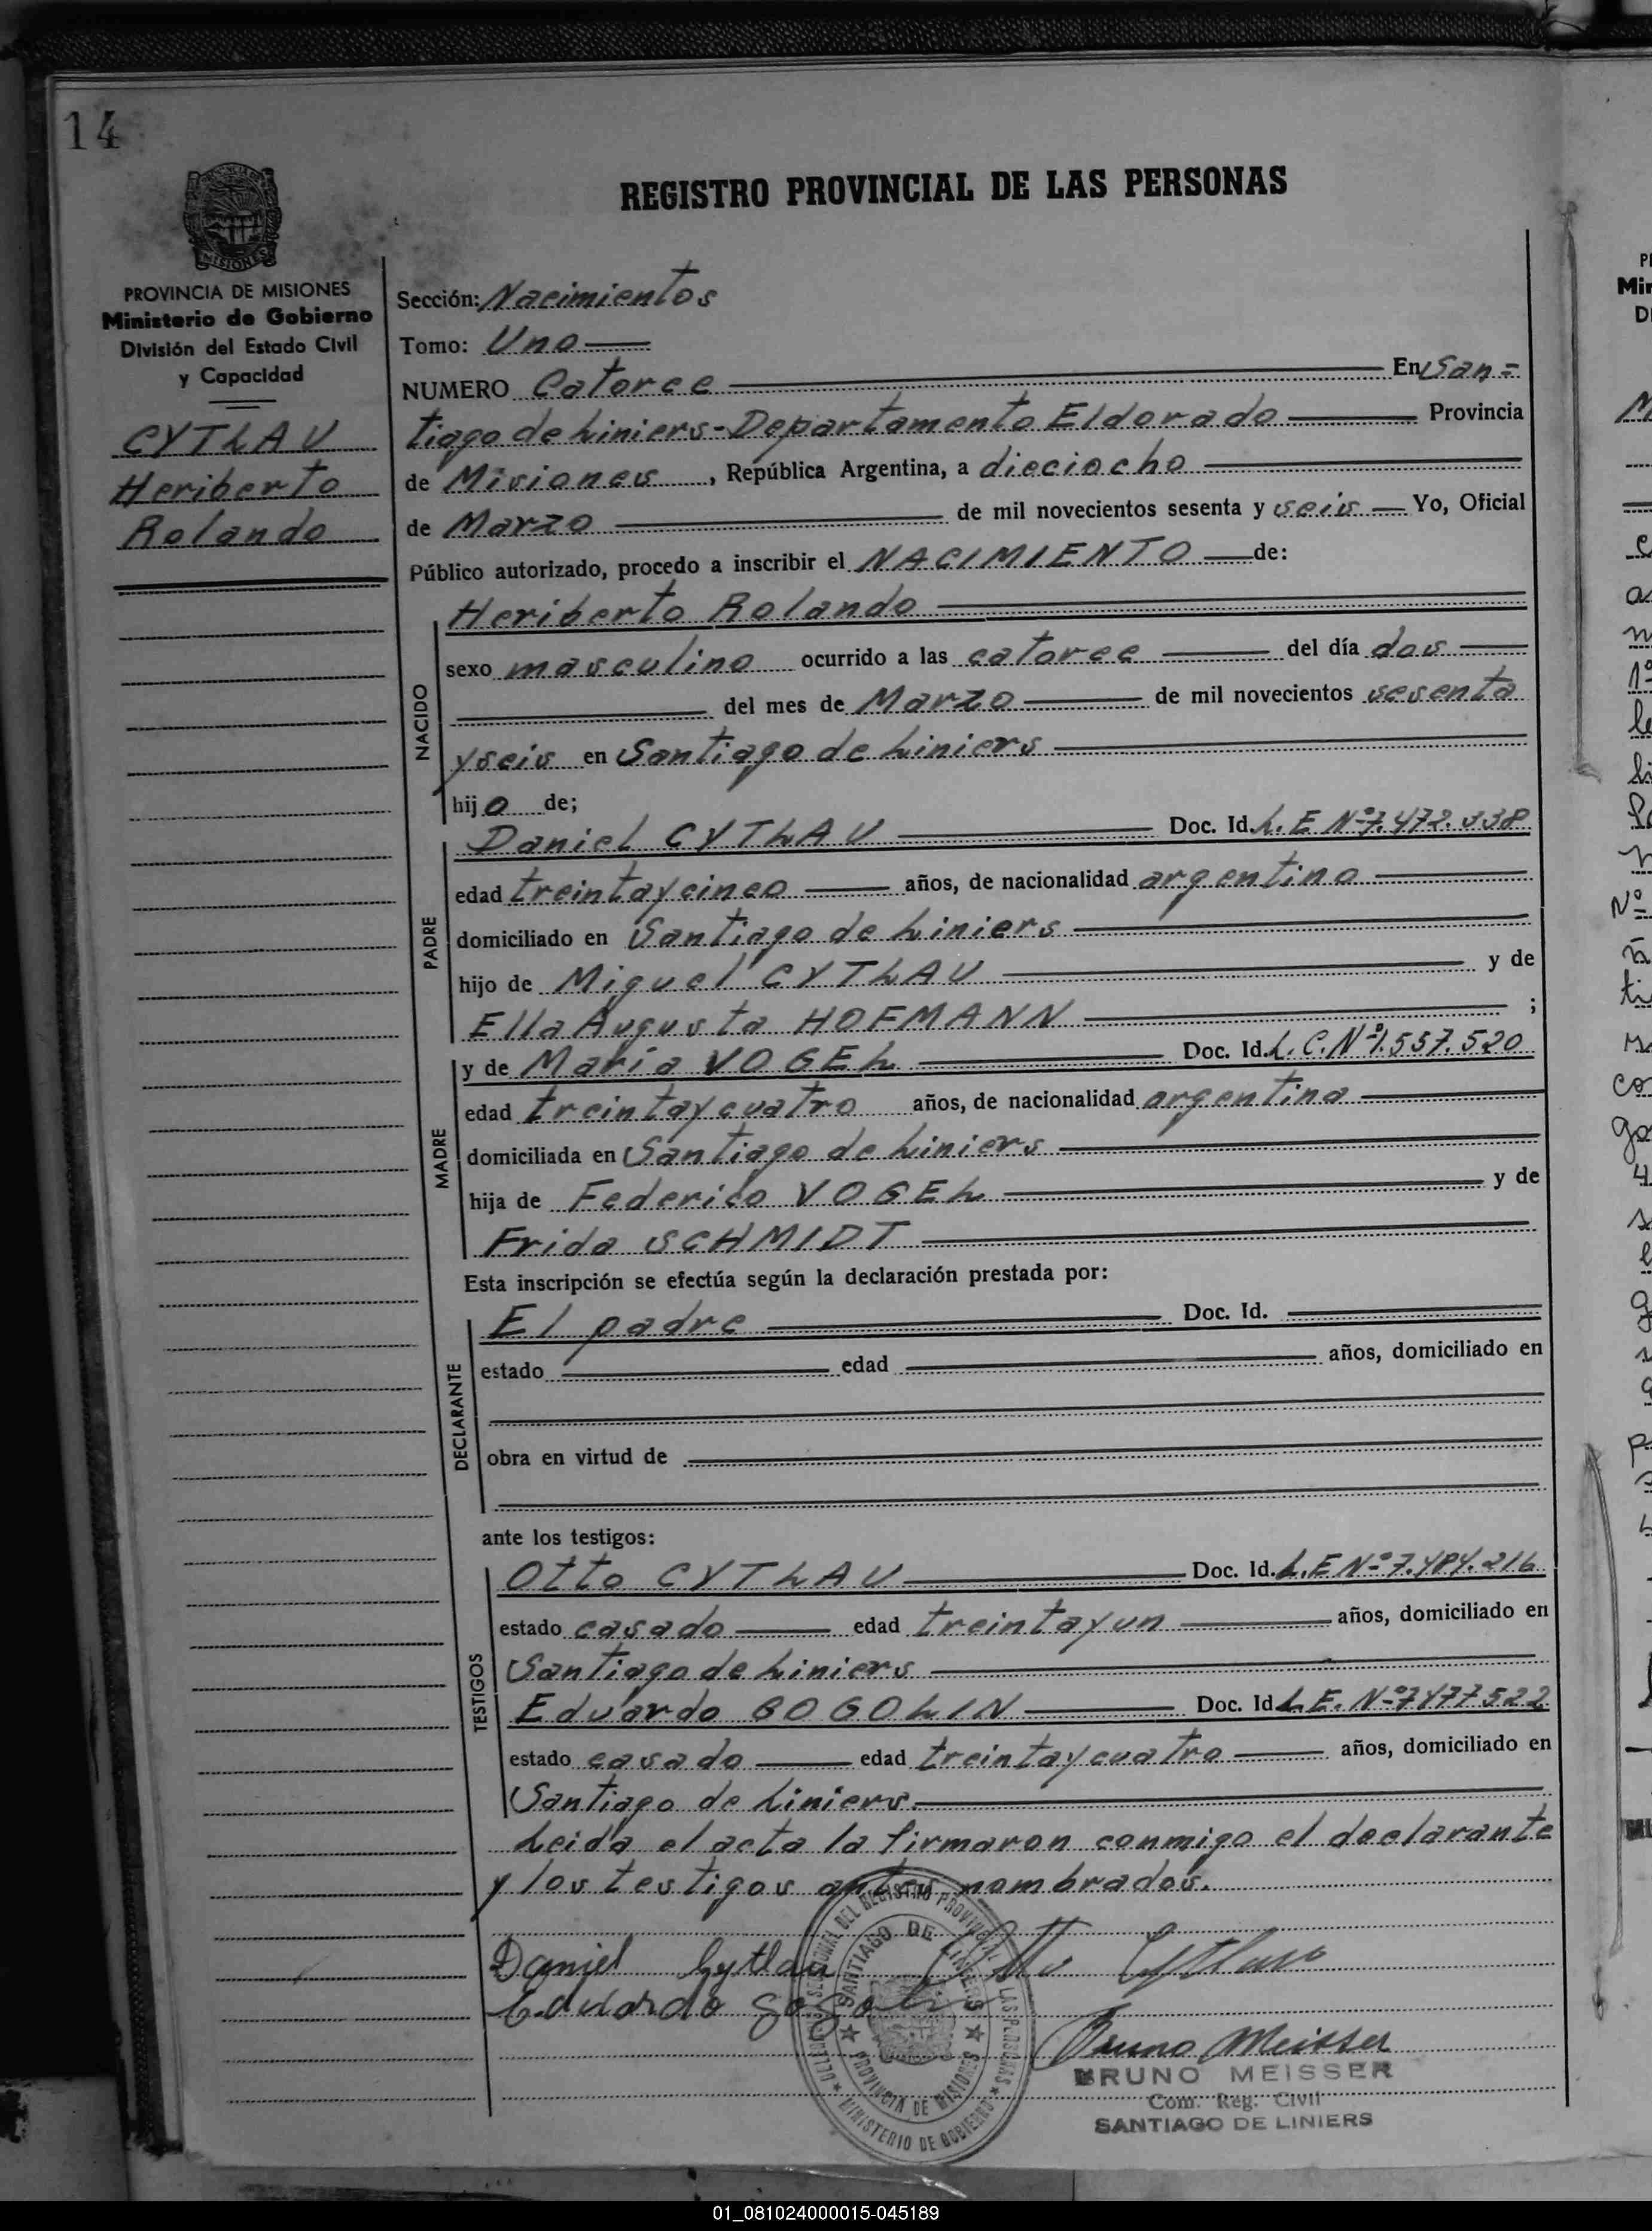 14
REGISTRO PROVINCIAL DE LAS PERSONAS
MISIONES
PROVINCIA DE MISIONES
Ministerio de Gobierno
División del Estado Civil
y Capacidad
CYTLAU
Heriberto
Rolando
Sección: Nacimientos
Tomo: Uno
NUMERO Catorce En San=
tiago de Liniers-Departamento Eldorado Provincia
de Misiones, República Argentina, a dieciocho
de Marzo de mil novecientos sesenta y seis Yo, Oficial
Público autorizado, procedo a inscribir el NACIMIENTO de:
NACIDO
Heriberto Rolando
sexo masculino ocurrido a las catorce del día dos
del mes de Marzo de mil novecientos sesenta
y seis en Santiago de Liniers
hijo de;
PADRE
Daniel CYTLAU Doc. Id. L.E Nº 7.472.338
edad treinta y cinco años, de nacionalidad argentino
domiciliado en Santiago de Liniers
hijo de Miguel CYTLAU y de
Ella Augusta HOFMANN ;
MADRE
y de María VOGEL Doc. Id. L.C. Nº 1.557.520
edad treinta y cuatro años, de nacionalidad argentina
domiciliada en Santiago de Liniers
hija de Federico VOGEL y de
Frida SCHMIDT
Esta inscripción se efectúa según la declaración prestada por:
DECLARANTE
El padre Doc. Id.
estado edad años, domiciliado en
obra en virtud de
ante los testigos:
TESTIGOS
Otto CYTLAU Doc. Id. L.E Nº 7.484.216
estado casado edad treinta y un años, domiciliado en
Santiago de Liniers
Eduardo GOGOLIN Doc. Id L.E. Nº 7477522
estado casado edad treinta y cuatro años, domiciliado en
Santiago de Liniers.
Leida el acta la firmaron conmigo el declarante
y los testigos antes nombrados.
Daniel Cytlau Otto Cytlau
Eduardo Gogolin
SANTIAGO DE LINIERS
PROVINCIA DE MISIONES
MINISTERIO DE GOBIERNO
Bruno Meisser
BRUNO MEISSER
Com. Reg. Civil
SANTIAGO DE LINIERS
01_081024000015-045189